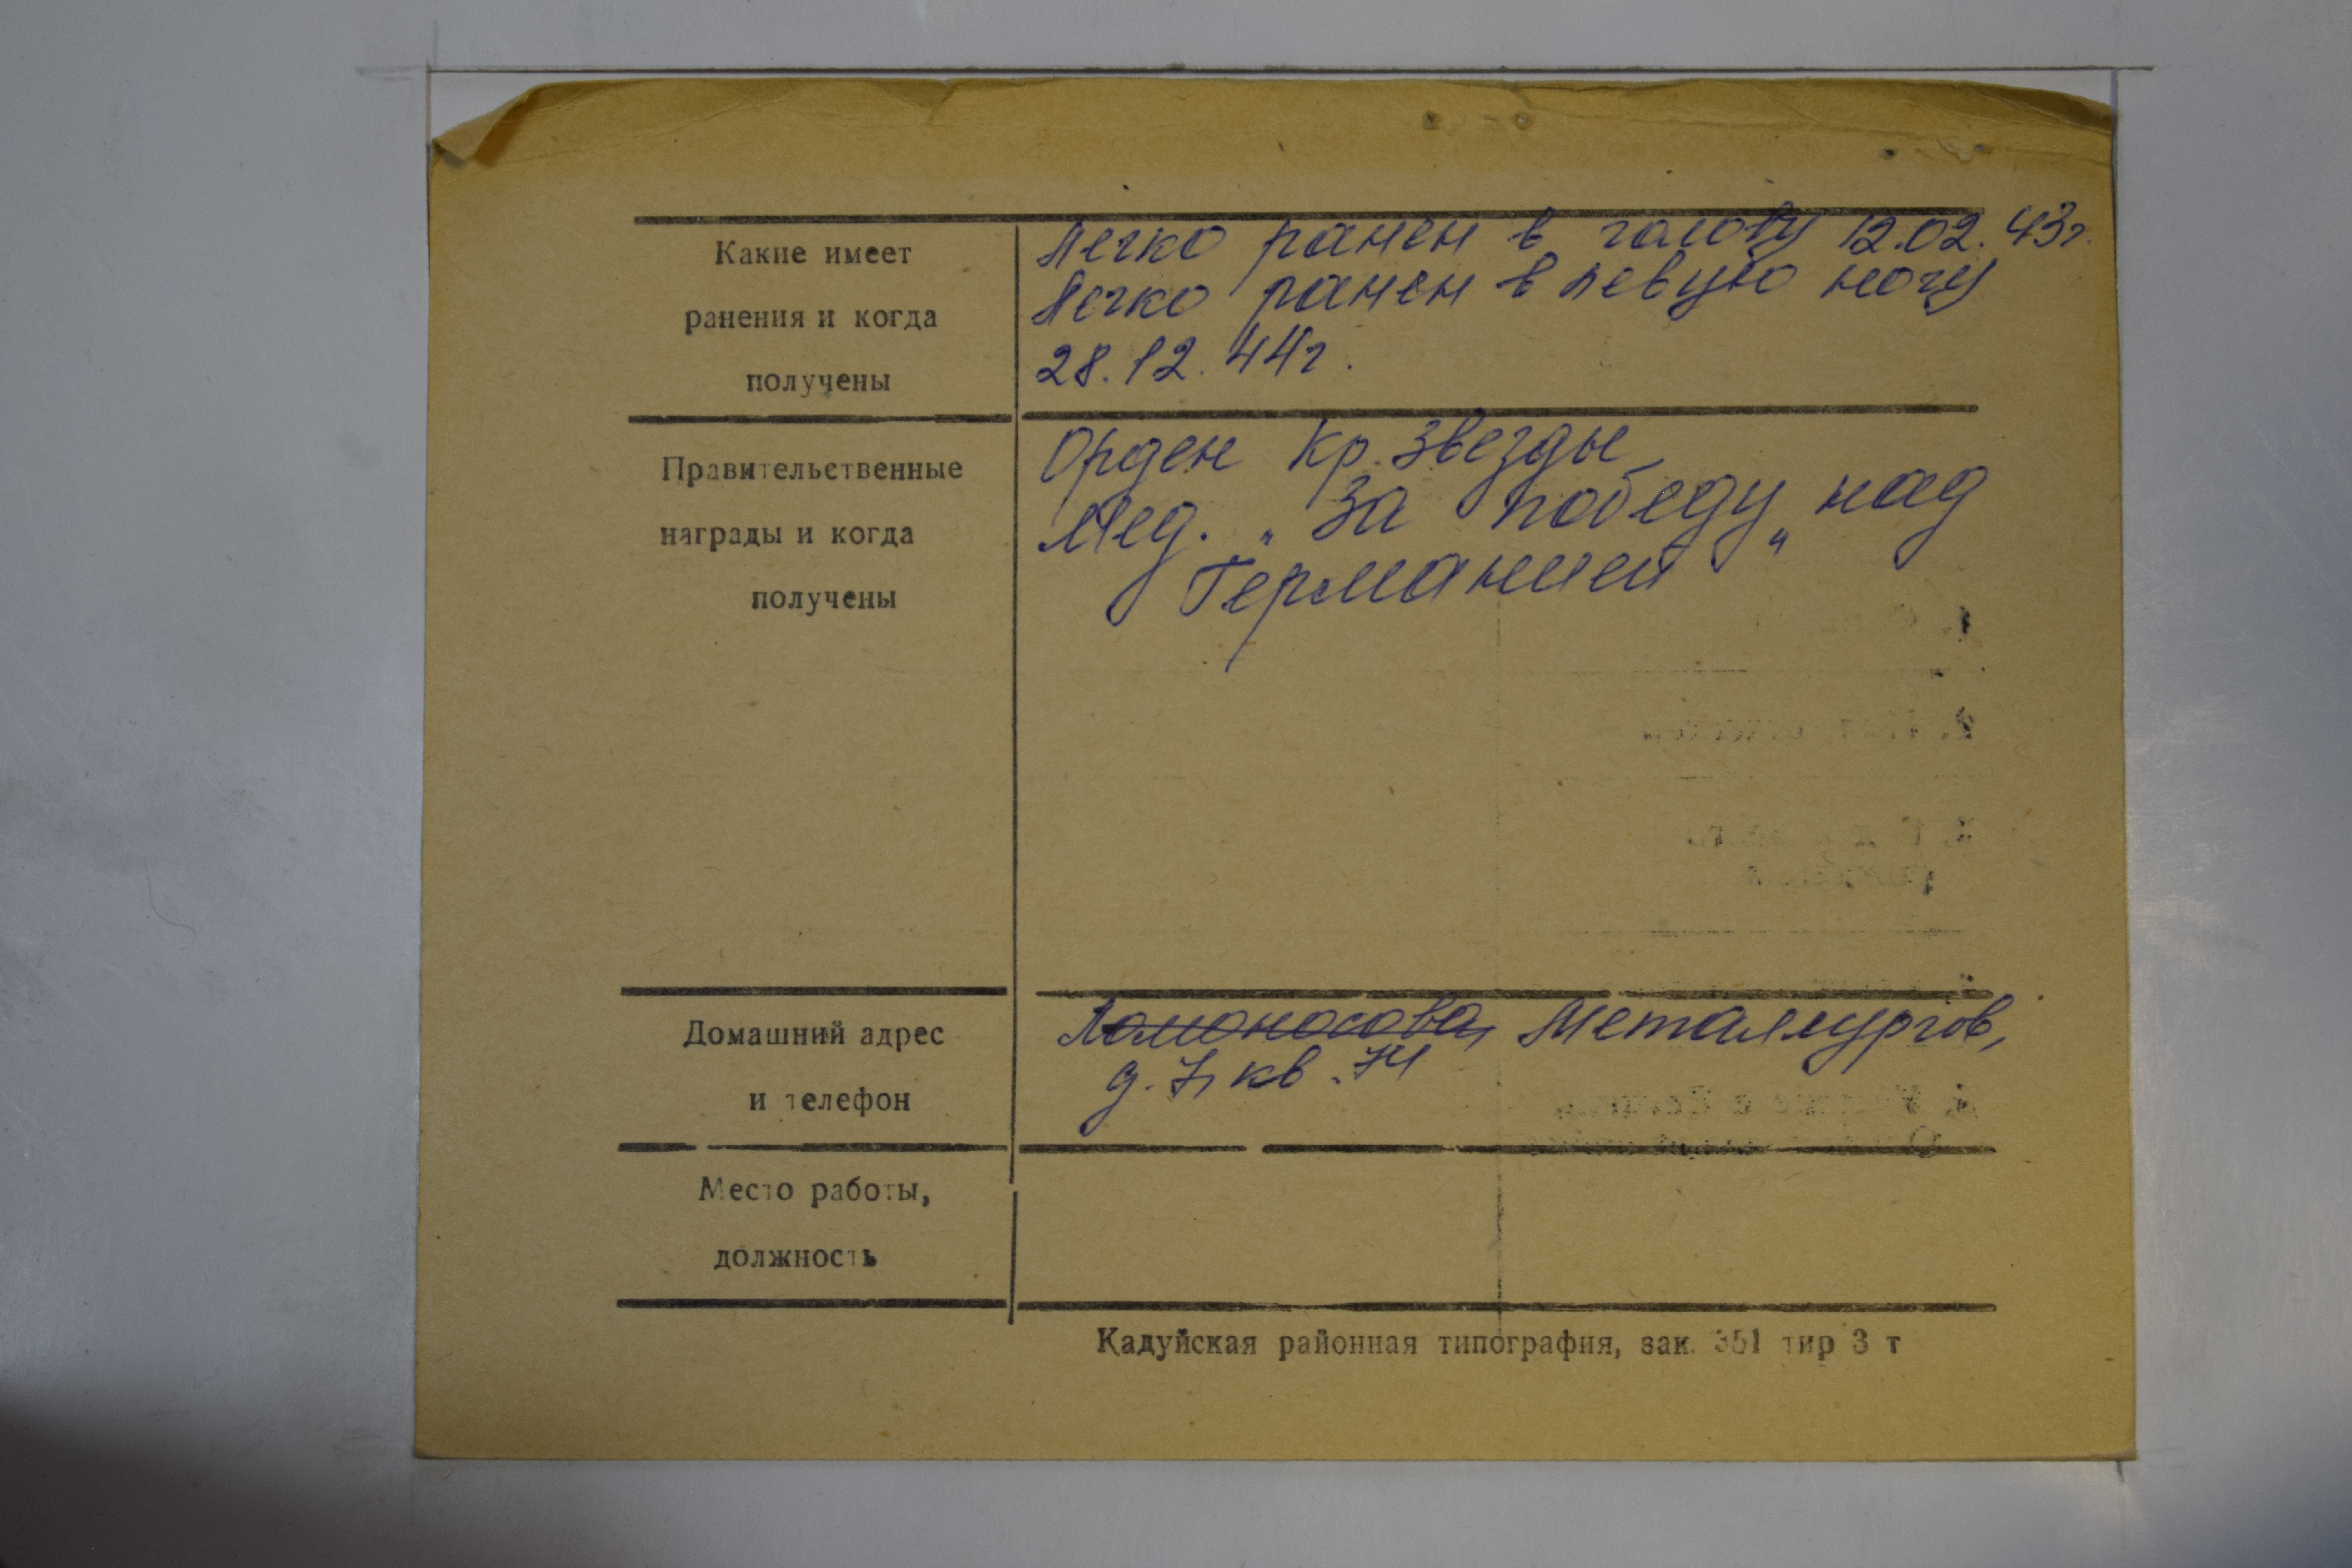 Какие имеет
ранения и когда
получены
Легко ранен в голову 12.02.43г.
Легко ранен в левую ногу
28.12.44г.
Правительственные
награды и когда
получены
Орден Кр. Звезды
Мед. „За победу„ над
Германией
Домашний адрес
и телефон
Ломоносова, Металлургов,
д. 7, кв. 74
Место работы,
должность
Кадуйская районная типография, зак. 351 тир 3 т